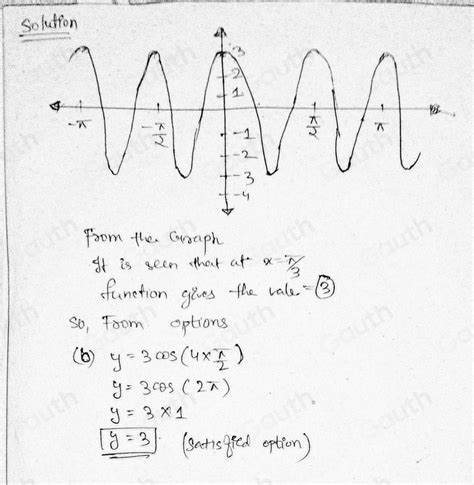 Solution
3
2
1
-π
-π/2
π/2
π
-1
-2
-3
-4
From the Graph
It is seen that at x = π/3
function gives the vale = 3
So, From options
(b) y = 3 cos (4 × π/2)
y = 3 cos (2π)
y = 3 × 1
y = 3 (Satisfied option)
Gauth